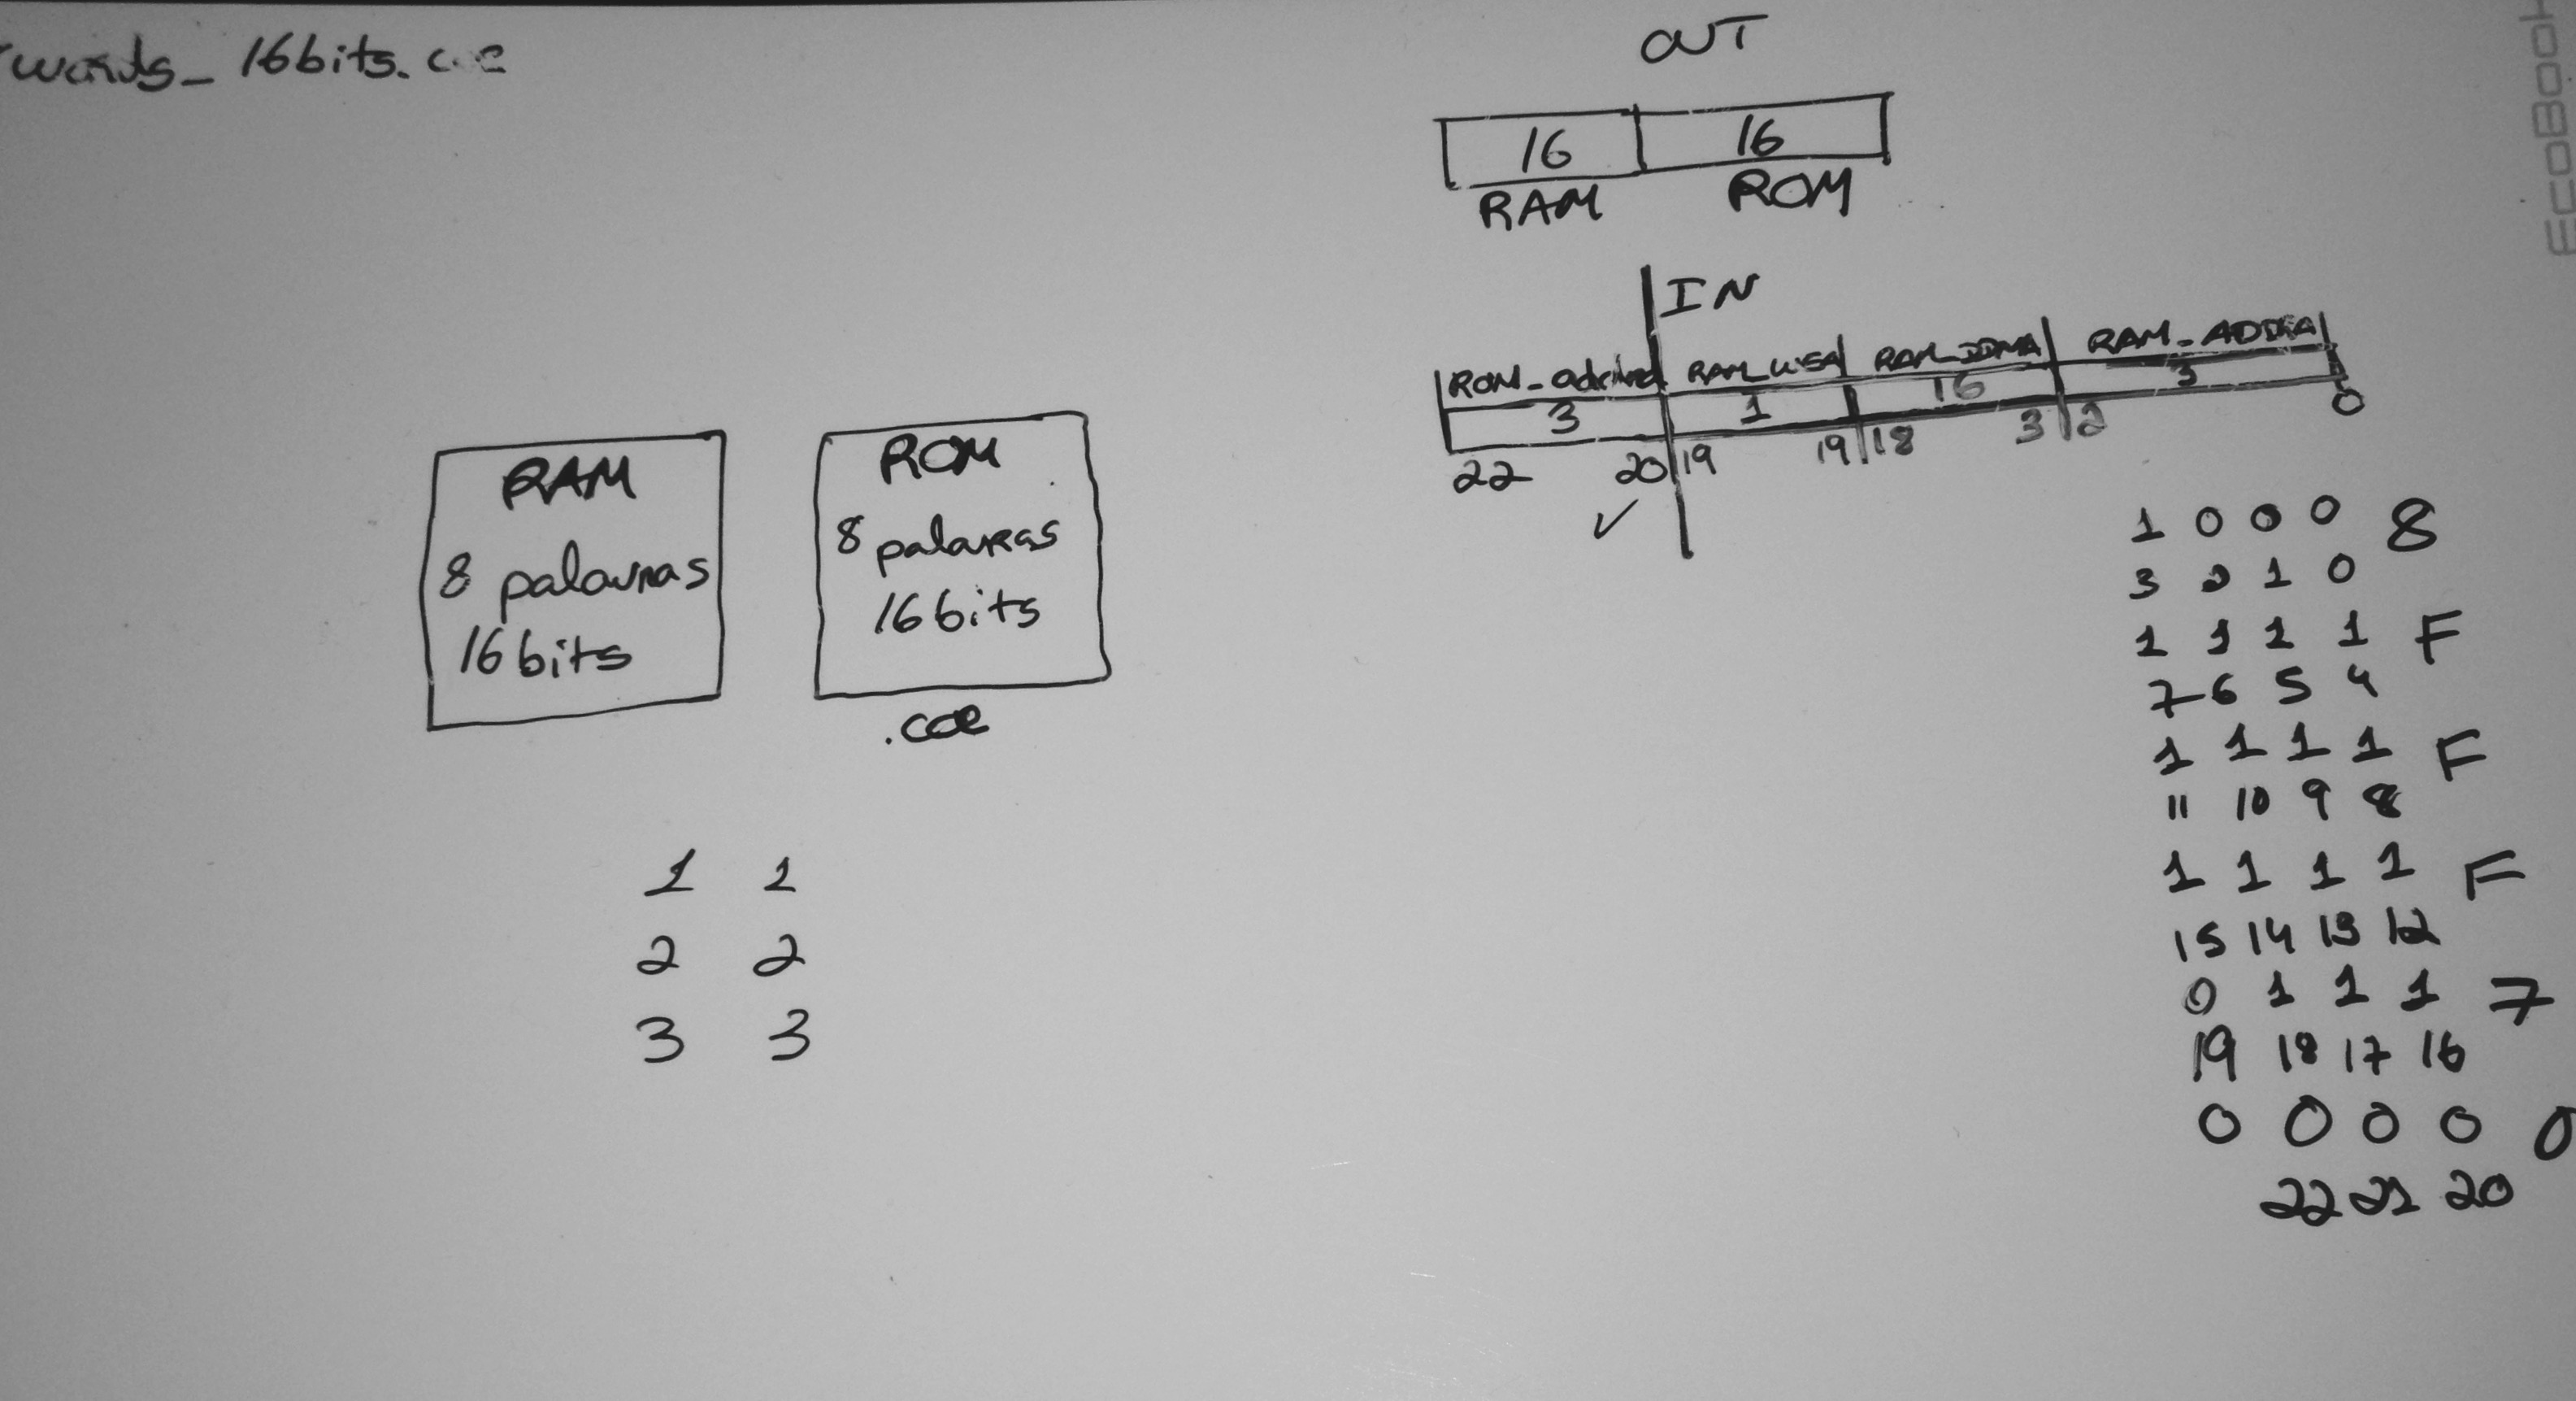 words_16bits.c
OUT
16 16
RAM ROM
IN
RAM_ADDRA
3 1 16 3
22 20 19 19 18 3 2 0
RAM
8 palavras
16bits
ROM
8 palavras
16bits
.coe
1 1
2 2
3 3
1 0 0 0 8
3 2 1 0
1 1 1 1 F
7 6 5 4
1 1 1 1 F
11 10 9 8
1 1 1 1 F
15 14 13 12
0 1 1 1 7
19 18 17 16
0 0 0 0 0
22 21 20
EcoBook